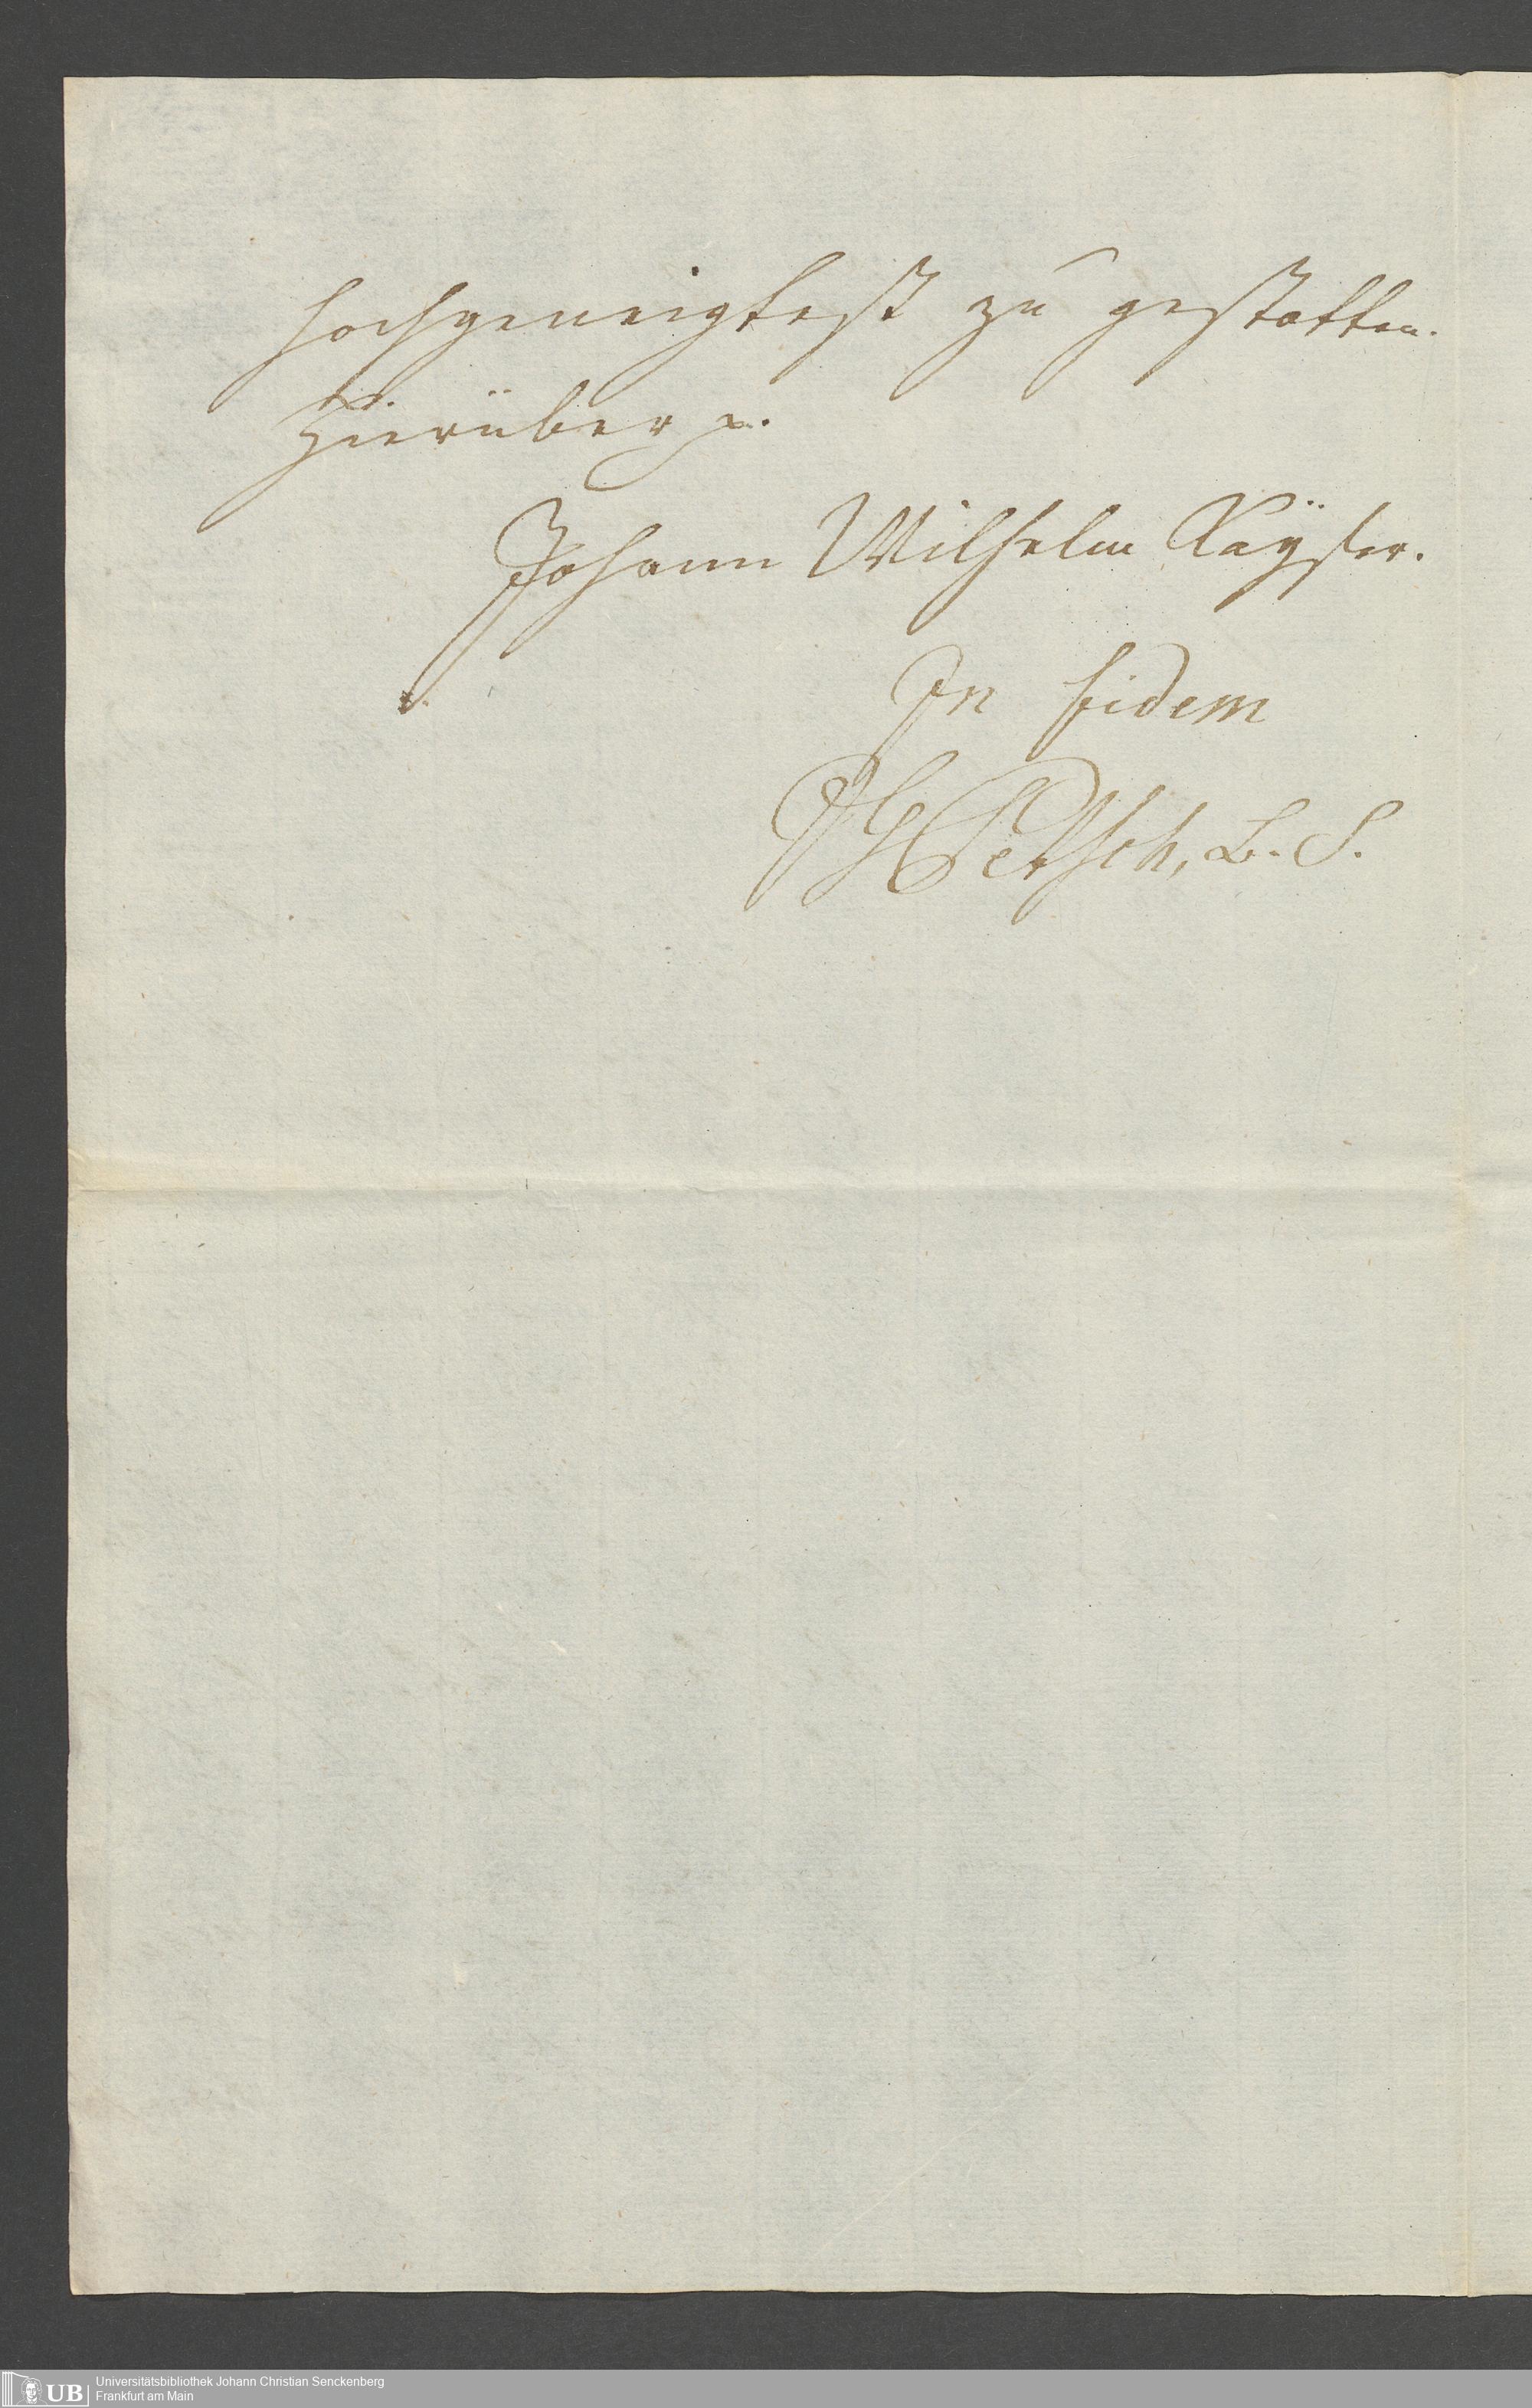 hochgeneigtest zu gestatten.
Hierüber p.
Johann Wilhelm Kayser.
In fidem
Petsch, L. S.
UB
Universitätsbibliothek Johann Christian Senckenberg
Frankfurt am Main